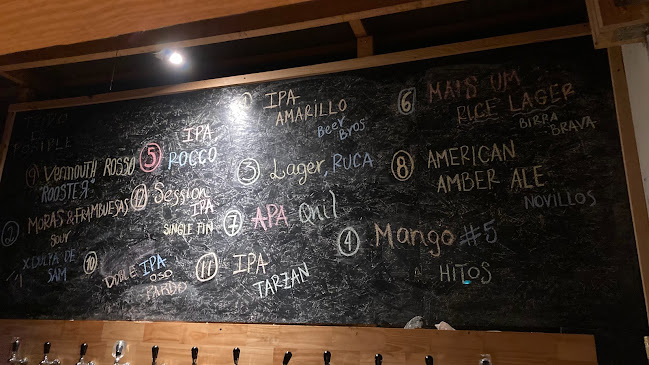 TODO
ES
POSIBLE
9 VERMOUTH ROSSO
ROOSTER
2 MORAS & FRAMBUESAS
SOUR
X CULPA DE
SAM
5 IPA
ROCCO
12 Session
IPA
SINGLE FIN
10 DOBLE IPA
OSO
PARDO
1 IPA
AMARILLO
Beer
Bros
3 Lager, RUCA
7 APA Qñil
11 IPA
TARZAN
6 MAIS UM
RICE LAGER
BIRRA
BRAVA
8 AMERICAN
AMBER ALE
NOVILLOS
4 Mango #5
HITOS